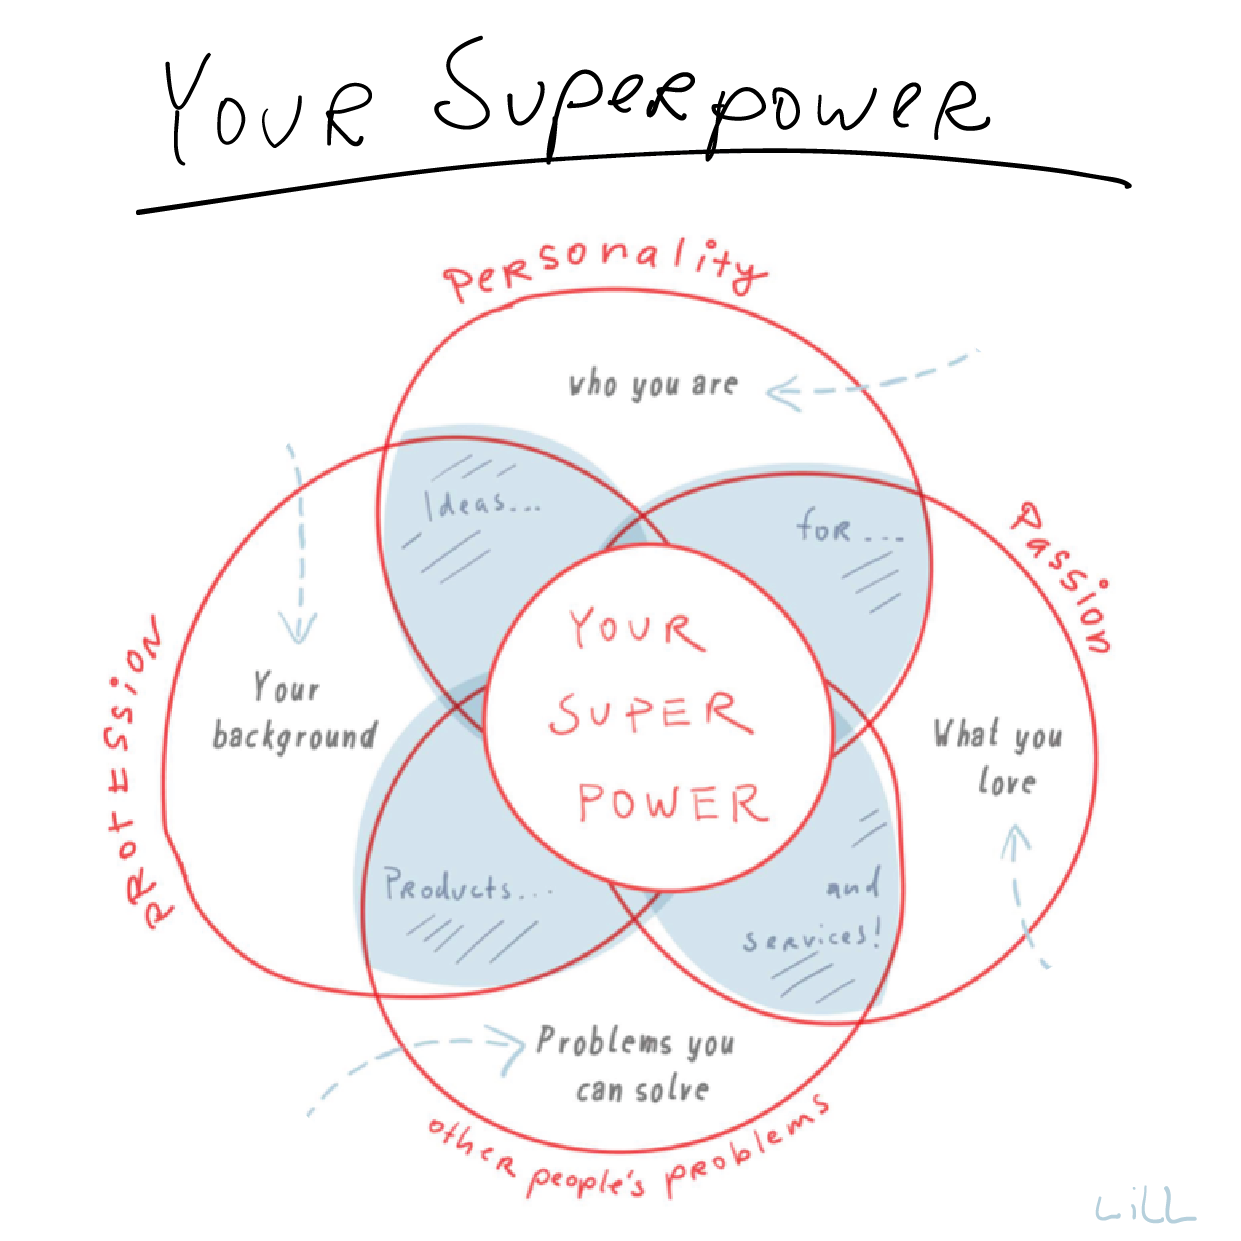 YOUR SUPERPOWER
Personality
who you are
Ideas...
for...
Passion
YOUR
SUPER
POWER
PROFESSION
Your
background
What you
love
Products...
and
services!
Problems you
can solve
other people's problems
LiLL